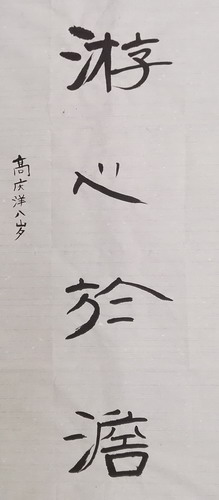 游心於澹
高庆洋八岁